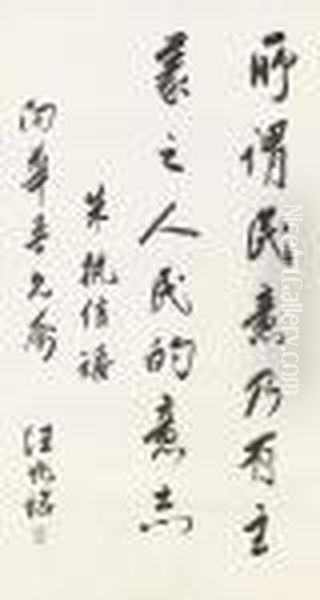 所謂民意乃有主
義之人民的意志
朱執信語
向華吾兄屬
汪兆銘
NiceArtGallery.com